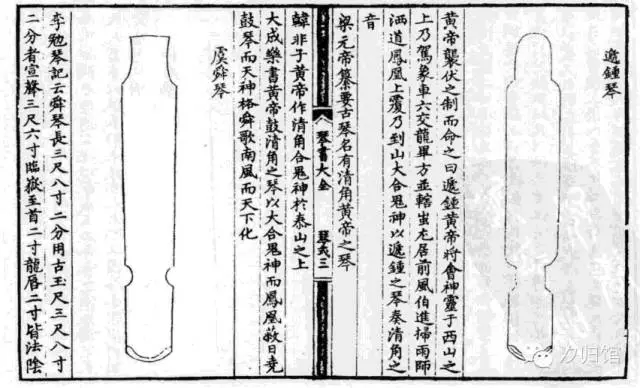 遞鍾琴
黃帝襲伏之制而命之曰遞鍾黃帝將會神靈于西山之
上乃駕象車六交龍畢方並轄蚩尤居前風伯進掃雨師
洒道鳳凰上覆乃到山大合鬼神以遞鍾之琴奏清角之
音
梁元帝纂要古琴名有清角黃帝之琴
琴書大全
琴式三
韓非子黃帝作清角合鬼神於泰山之上
大成樂書黃帝鼓清角之琴以大合鬼神而鳳凰蔽日堯
鼓琴而天神格舜歌南風而天下化
虞舜琴
李勉琴記云舜琴長三尺八寸二分用古玉尺三尺八寸
二分者宣聲三尺六寸臨嶽至首二寸龍唇二寸皆法陰
汐归馆